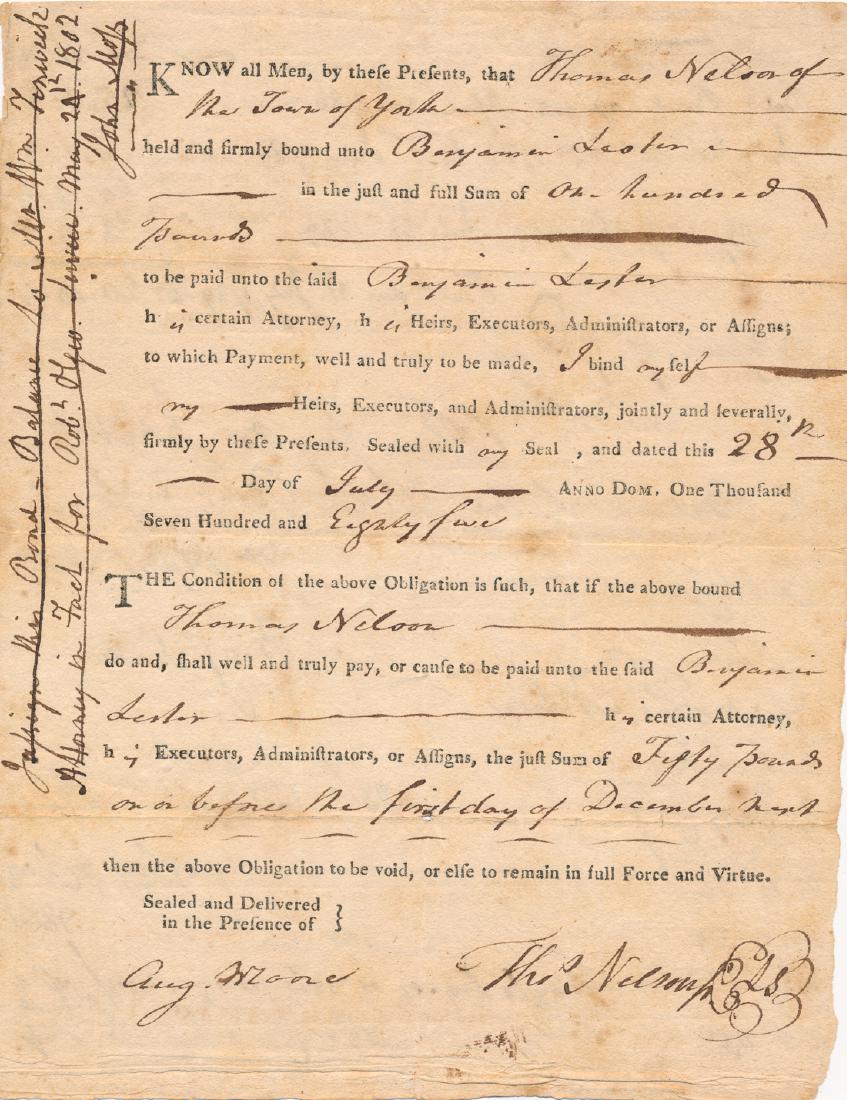 KNOW all Men, by theſe Preſents, that Thomas Nelson of
the Town of York
held and firmly bound unto Benjamin Lester
in the juſt and full Sum of One hundred
pounds
to be paid unto the ſaid Benjamin Lester
his certain Attorney, his Heirs, Executors, Adminiſtrators, or Aſſigns;
to which Payment, well and truly to be made, I bind myſelf
my Heirs, Executors, and Adminiſtrators, jointly and ſeverally,
firmly by theſe Preſents. Sealed with my Seal , and dated this 28th
Day of July ANNO DOM. One Thouſand
Seven Hundred and Eighty five
THE Condition of the above Obligation is ſuch, that if the above bound
Thomas Nelson
do and, ſhall well and truly pay, or cauſe to be paid unto the ſaid Benjamin
Lester his certain Attorney,
his Executors, Adminiſtrators, or Aſſigns, the juſt Sum of Fifty pounds
on or before the first day of December next
then the above Obligation to be void, or elſe to remain in full Force and Virtue.
Sealed and Delivered
in the Preſence of }
Aug. Moore
Thos Nelson jr. LS
I aſsign this Bond - Balance to Mr. Wm. Fenwick
Attorney in Fact for Robt May 24th 1802
John Moſs